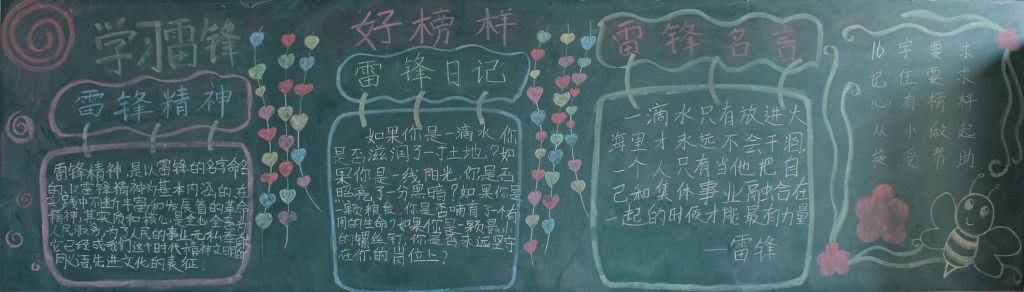 学习雷锋
好榜样
雷锋精神
雷锋精神，是以雷锋的名字命名
的、以雷锋精神为基本内涵的、在
实践中不断丰富和发展着的革命
精神，其实质和核心是全心全意为
人民服务，为了人民的事业无私奉献
它已经成我们这个时代精神文明的
同义语、先进文化的表征.
雷锋日记
如果你是一滴水，你
是否滋润了一寸土地？如
果你是一线阳光，你是否
照亮了一分黑暗？如果你是
一颗粮食，你是否哺育了有
用的生命？如果你是一颗最小
的螺丝钉，你是否永远坚守
在你的岗位上？
雷锋名言
一滴水只有放进大
海里才永远不会干涸，
一个人只有当他把自
己和集体事业融合在
一起的时候才能最有力量
—雷锋
16字要求
记住要求
心有榜样
从小做起
接受帮助